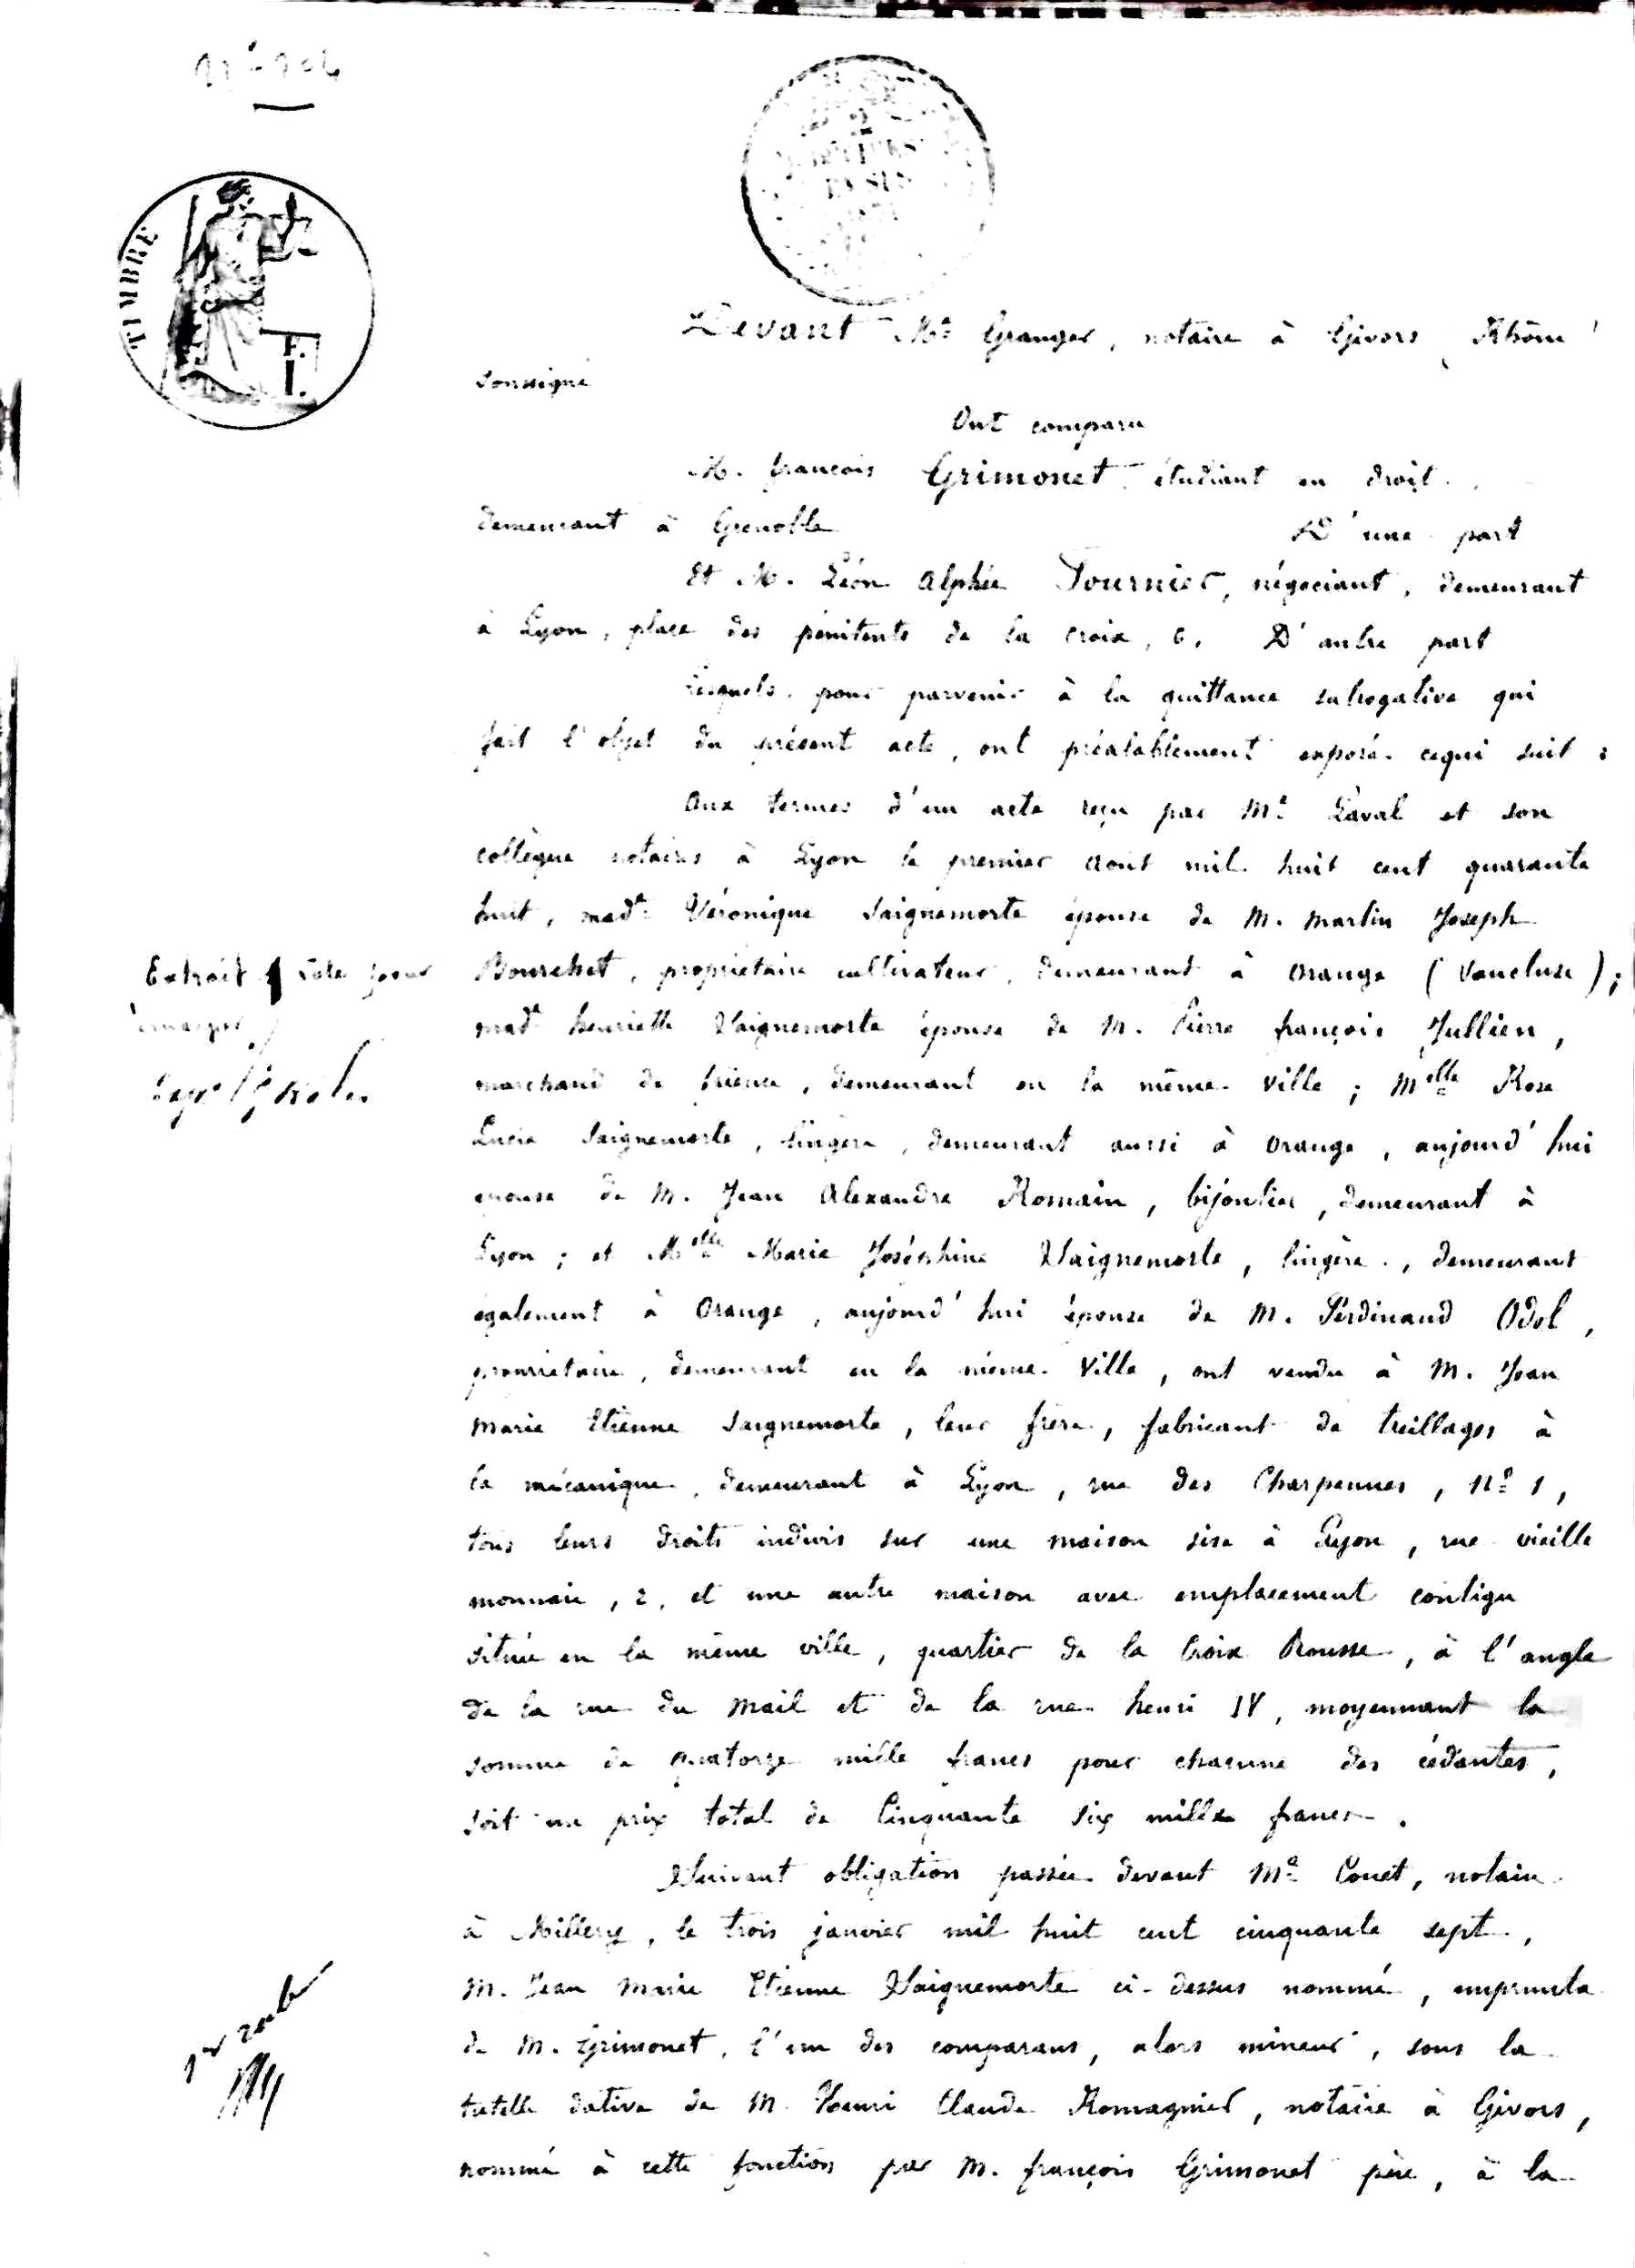 TIMBRE
F.
I.
Devant Me Granger, notaire à Givors Rhône
soussigné
Ont comparu
M. françois Grimonet étudiant en droit
demeurant à Grenoble D'une part
Et M. Léon Alphée Fournier, négociant, demeurant
à Lyon, place des pénitents de la croix, 6. D'autre part
Lesquels, pour parvenir à la quittance subrogative qui
fait l'objet du présent acte, ont préalablement exposé cequi suit :
Aux termes d'un acte reçu par Me Laval et son
collègue notaires à Lyon le premier Août mil huit cent quarante
huit, made Véronique Saignemorte épouse de M. Martin Joseph
Extrait pour
Bourchet, propriétaire cultivateur, demeurant à Orange (Vaucluse);
made henriette Saignemorte épouse de M. Pierre françois Jullien,
marchand de faience, demeurant en la même ville ; Melle Rose
Lucie Saignemorte, lingère, demeurant aussi à Orange, aujourd'hui
épouse de M. Jean Alexandre Romain, bijoutier, demeurant à
Lyon ; et Melle Marie Joséphine Saignemorte, lingère, demeurant
également à Orange, aujourd'hui épouse de M. Ferdinand Odol,
propriétaire, demeurant en la même Ville, ont vendu à M. Jean
Marie Etienne Saignemorte, leur frère, fabricant de treillages à
la mécanique, demeurant à Lyon, rue des Charpennes, No 1,
tous leurs droits indivis sur une maison sise à Lyon, rue vieille
monnaie, 2, et une autre maison avec emplacement contigu
située en la même ville, quartier de la Croix Rousse, à l'angle
de la rue du Mail et de la rue henri IV, moyennant la
somme de quatorze mille francs pour chacune des cédantes,
soit un prix total de Cinquante six mille francs.
Suivant obligation passée devant Me Couet, notaire
à Millery, le trois janvier mil huit cent cinquante sept,
M. Jean Marie Etienne Saignemorte ci-dessus nommé, emprunta
de M. Grimonet, l'un des comparans, alors mineur, sous la
tutelle dative de M. Henri Claude Romagnier, notaire à Givors,
nommé à cette fonction par M. françois Grimonet père, à la